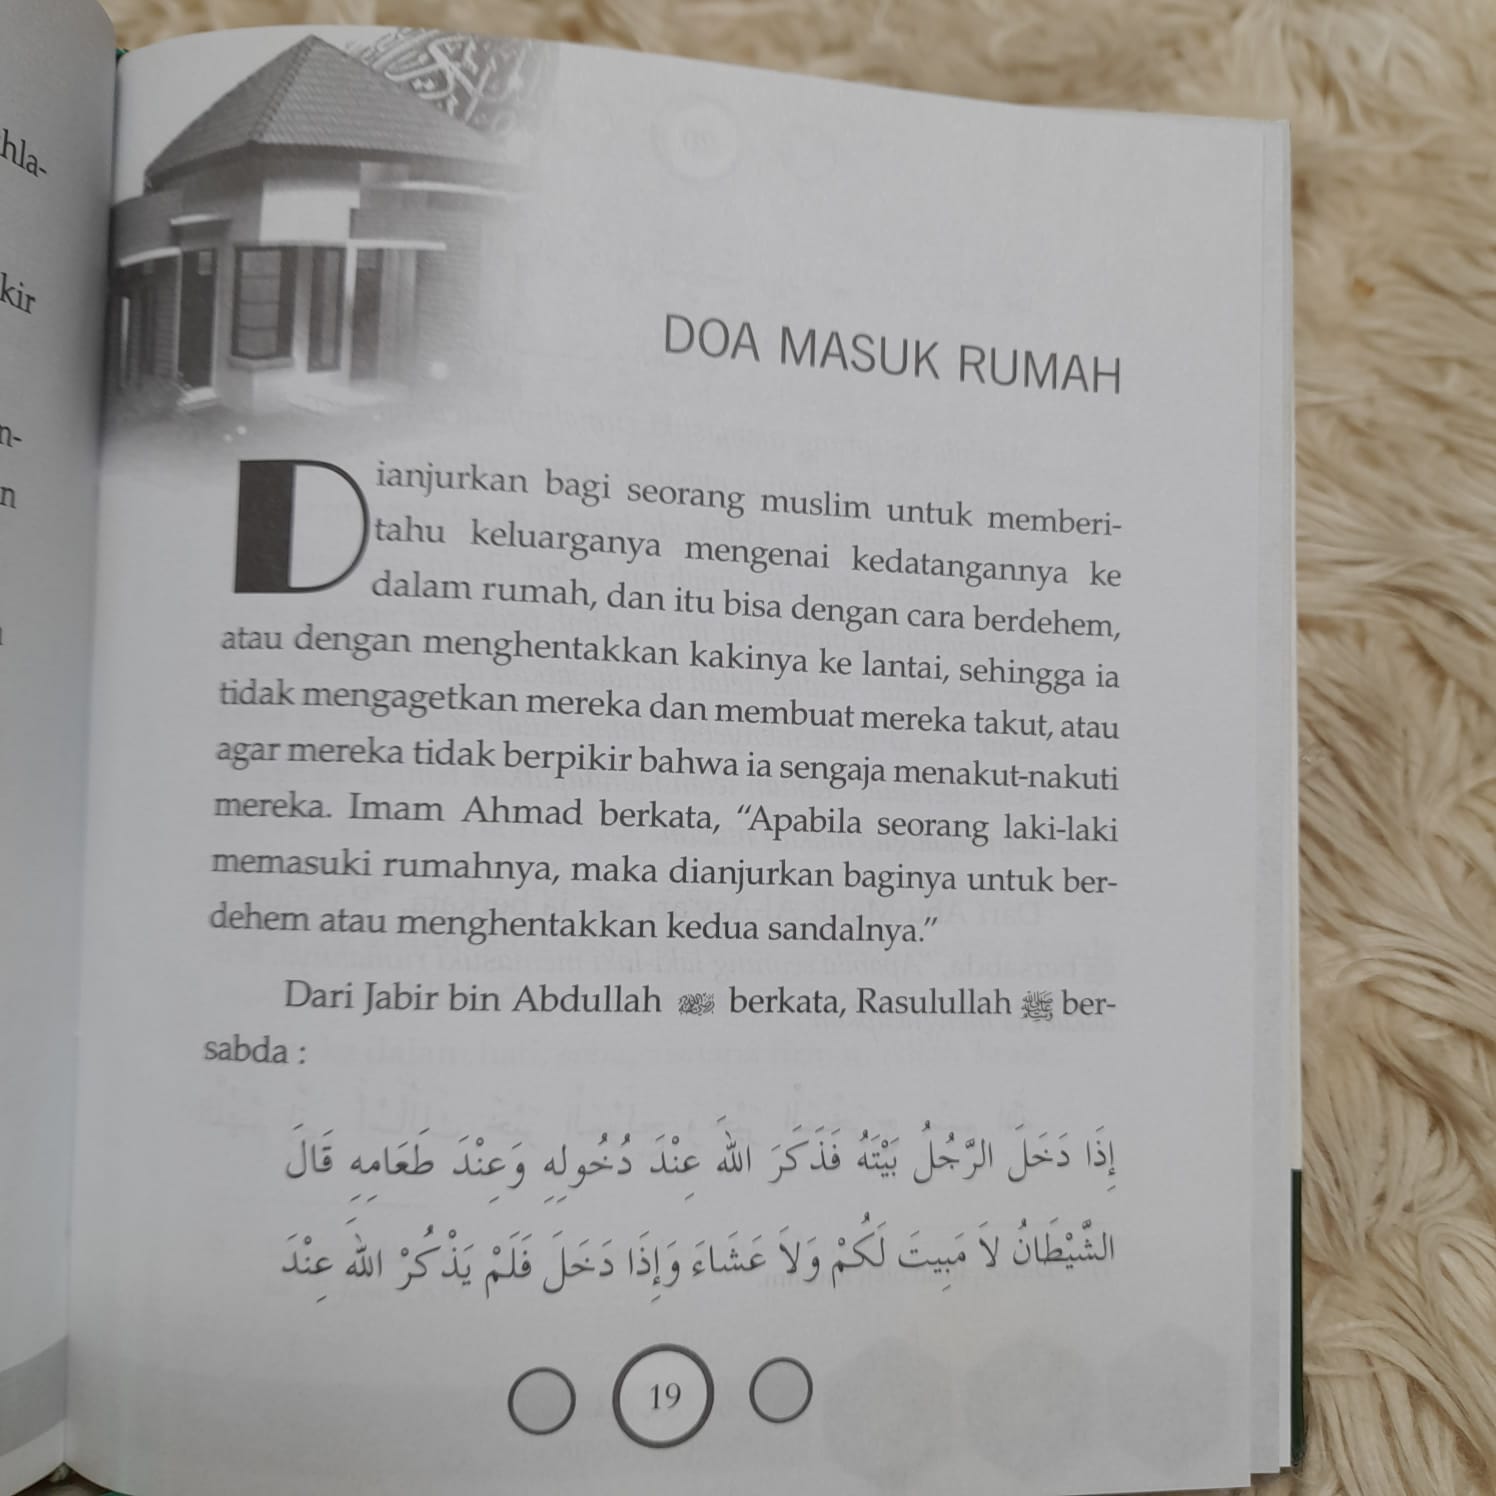 hla-
kir
n-
n
DOA MASUK RUMAH
Dianjurkan bagi seorang muslim untuk memberi-
tahu keluarganya mengenai kedatangannya ke
dalam rumah, dan itu bisa dengan cara berdehem,
atau dengan menghentakkan kakinya ke lantai, sehingga ia
tidak mengagetkan mereka dan membuat mereka takut, atau
agar mereka tidak berpikir bahwa ia sengaja menakut-nakuti
mereka. Imam Ahmad berkata, “Apabila seorang laki-laki
memasuki rumahnya, maka dianjurkan baginya untuk ber-
dehem atau menghentakkan kedua sandalnya.”
Dari Jabir bin Abdullah berkata, Rasulullah ﷺ ber-
sabda :
إِذَا دَخَلَ الرَّجُلُ بَيْتَهُ فَذَكَرَ اللهَ عِنْدَ دُخُولِهِ وَعِنْدَ طَعَامِهِ قَالَ
الشَّيْطَانُ لاَ مَبِيتَ لَكُمْ وَلاَ عَشَاءَ وَإِذَا دَخَلَ فَلَمْ يَذْكُرْ اللهَ عِنْدَ
19